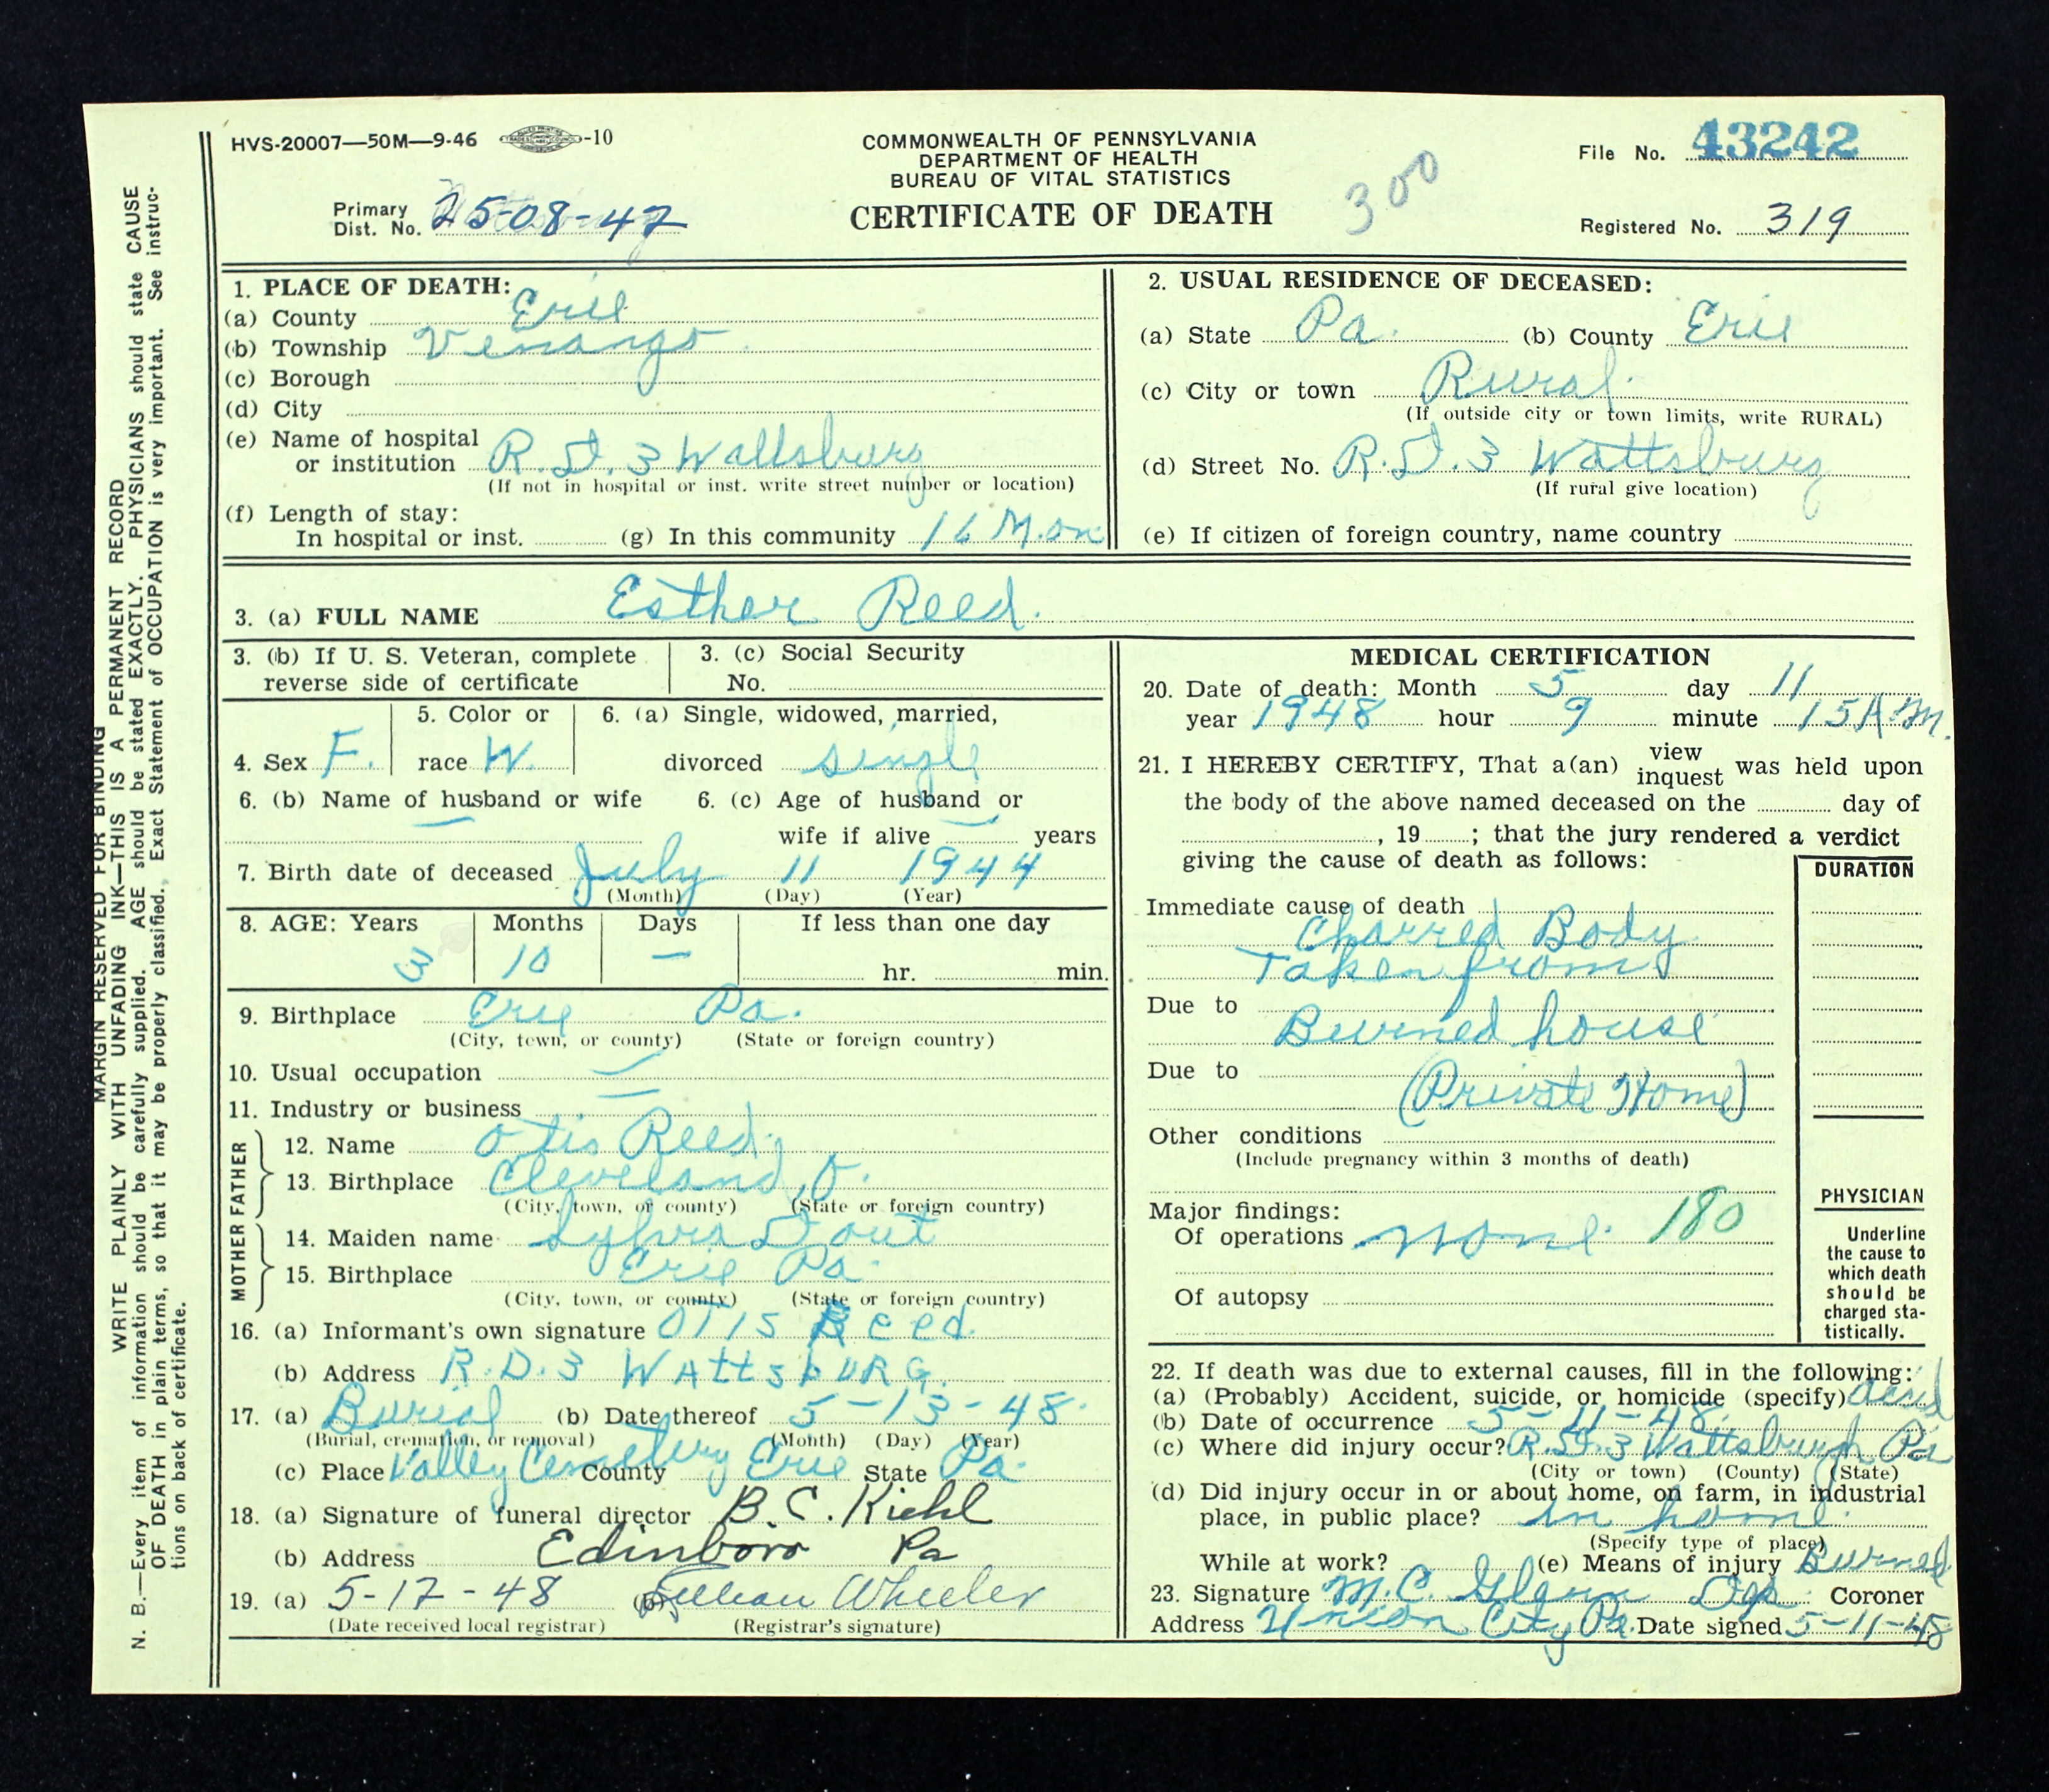 HVS-20007—50M—9-46 -10
COMMONWEALTH OF PENNSYLVANIA
DEPARTMENT OF HEALTH
BUREAU OF VITAL STATISTICS
CERTIFICATE OF DEATH
300
File No. 43242
Primary Dist. No. 25-08-47
Registered No. 319
MARGIN RESERVED FOR BINDING
WRITE PLAINLY WITH UNFADING INK—THIS IS A PERMANENT RECORD
N. B.—Every item of information should be carefully supplied. AGE should be stated EXACTLY. PHYSICIANS should state CAUSE
OF DEATH in plain terms, so that it may be properly classified. Exact Statement of OCCUPATION is very important. See instruc-
tions on back of certificate.
1. PLACE OF DEATH:
(a) County Erie
(b) Township Venango
(c) Borough
(d) City
(e) Name of hospital
or institution R.D. 3 Wattsburg
(If not in hospital or inst. write street number or location)
(f) Length of stay:
In hospital or inst. (g) In this community 16 Mon
2. USUAL RESIDENCE OF DECEASED:
(a) State Pa. (b) County Erie
(c) City or town Rural.
(If outside city or town limits, write RURAL)
(d) Street No. R.D. 3 Wattsburg
(If rural give location)
(e) If citizen of foreign country, name country
3. (a) FULL NAME Esther Reed.
3. (b) If U. S. Veteran, complete
reverse side of certificate
3. (c) Social Security
No.
4. Sex F.
5. Color or
race W.
6. (a) Single, widowed, married,
divorced single
6. (b) Name of husband or wife —
6. (c) Age of husband or
wife if alive — years
7. Birth date of deceased July 11 1944
(Month) (Day) (Year)
8. AGE: Years Months Days If less than one day
3 10 — hr. min.
9. Birthplace Erie Pa.
(City, town, or county) (State or foreign country)
10. Usual occupation —
11. Industry or business —
FATHER
12. Name Otis Reed
13. Birthplace Cleveland, O.
(City, town, or county) (State or foreign country)
MOTHER
14. Maiden name Sylvia
15. Birthplace Erie Pa.
(City, town, or county) (State or foreign country)
16. (a) Informant's own signature OTIS Reed
(b) Address R.D.3 WAttsbURG.
17. (a) Burial (b) Date thereof 5-13-48.
(Burial, cremation, or removal) (Month) (Day) (Year)
(c) Place Valley Cemetery County Erie State Pa.
18. (a) Signature of funeral director B.C. Kiehl
(b) Address Edinboro Pa
19. (a) 5-17-48 (b) Lillian Wheeler
(Date received local registrar) (Registrar's signature)
MEDICAL CERTIFICATION
20. Date of death: Month 5 day 11
year 1948 hour 9 minute 15 A.M.
21. I HEREBY CERTIFY, That a(an) view inquest was held upon
the body of the above named deceased on the day of
, 19 ; that the jury rendered a verdict
giving the cause of death as follows:
DURATION
Immediate cause of death
Charred Body
Taken from
Due to
Burned house
Due to
(Private Home)
Other conditions
(Include pregnancy within 3 months of death)
Major findings:
Of operations none. 180
Of autopsy
PHYSICIAN
Underline
the cause to
which death
should be
charged sta-
tistically.
22. If death was due to external causes, fill in the following:
(a) (Probably) Accident, suicide, or homicide (specify) accid
(b) Date of occurrence 5-11-48.
(c) Where did injury occur? R.D.3 Wattsburgh Pa
(City or town) (County) (State)
(d) Did injury occur in or about home, on farm, in industrial
place, in public place? in home.
(Specify type of place)
While at work? (e) Means of injury Burned
23. Signature M.C. Glenn Dep. Coroner
Address Union City Pa. Date signed 5-11-48